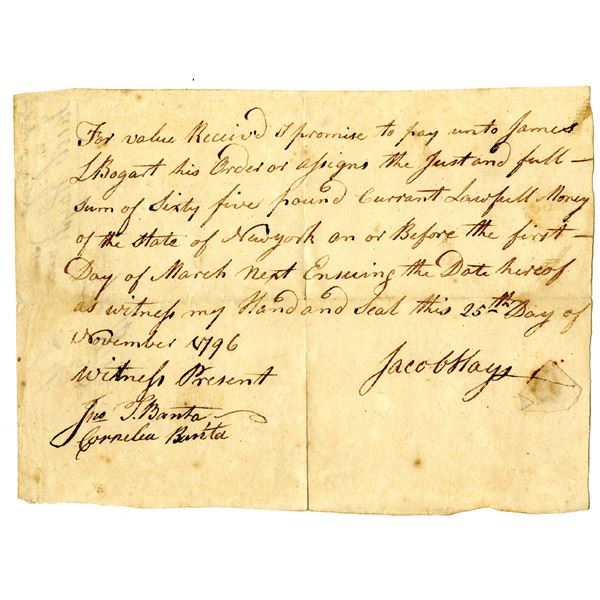 For value Receivd I promise to pay unto James
L Bogart his Order or assigns the Just and full
sum of Sixty five pound Currant Lawfull Money
of the State of Newyork on or Before the first
Day of March Next Ensuing the Date hereof
as witness my Hand and Seal this 25th Day of
November 1796
Jacob Hays
Witness Present
Jno T. Banta
Cornelea Banta